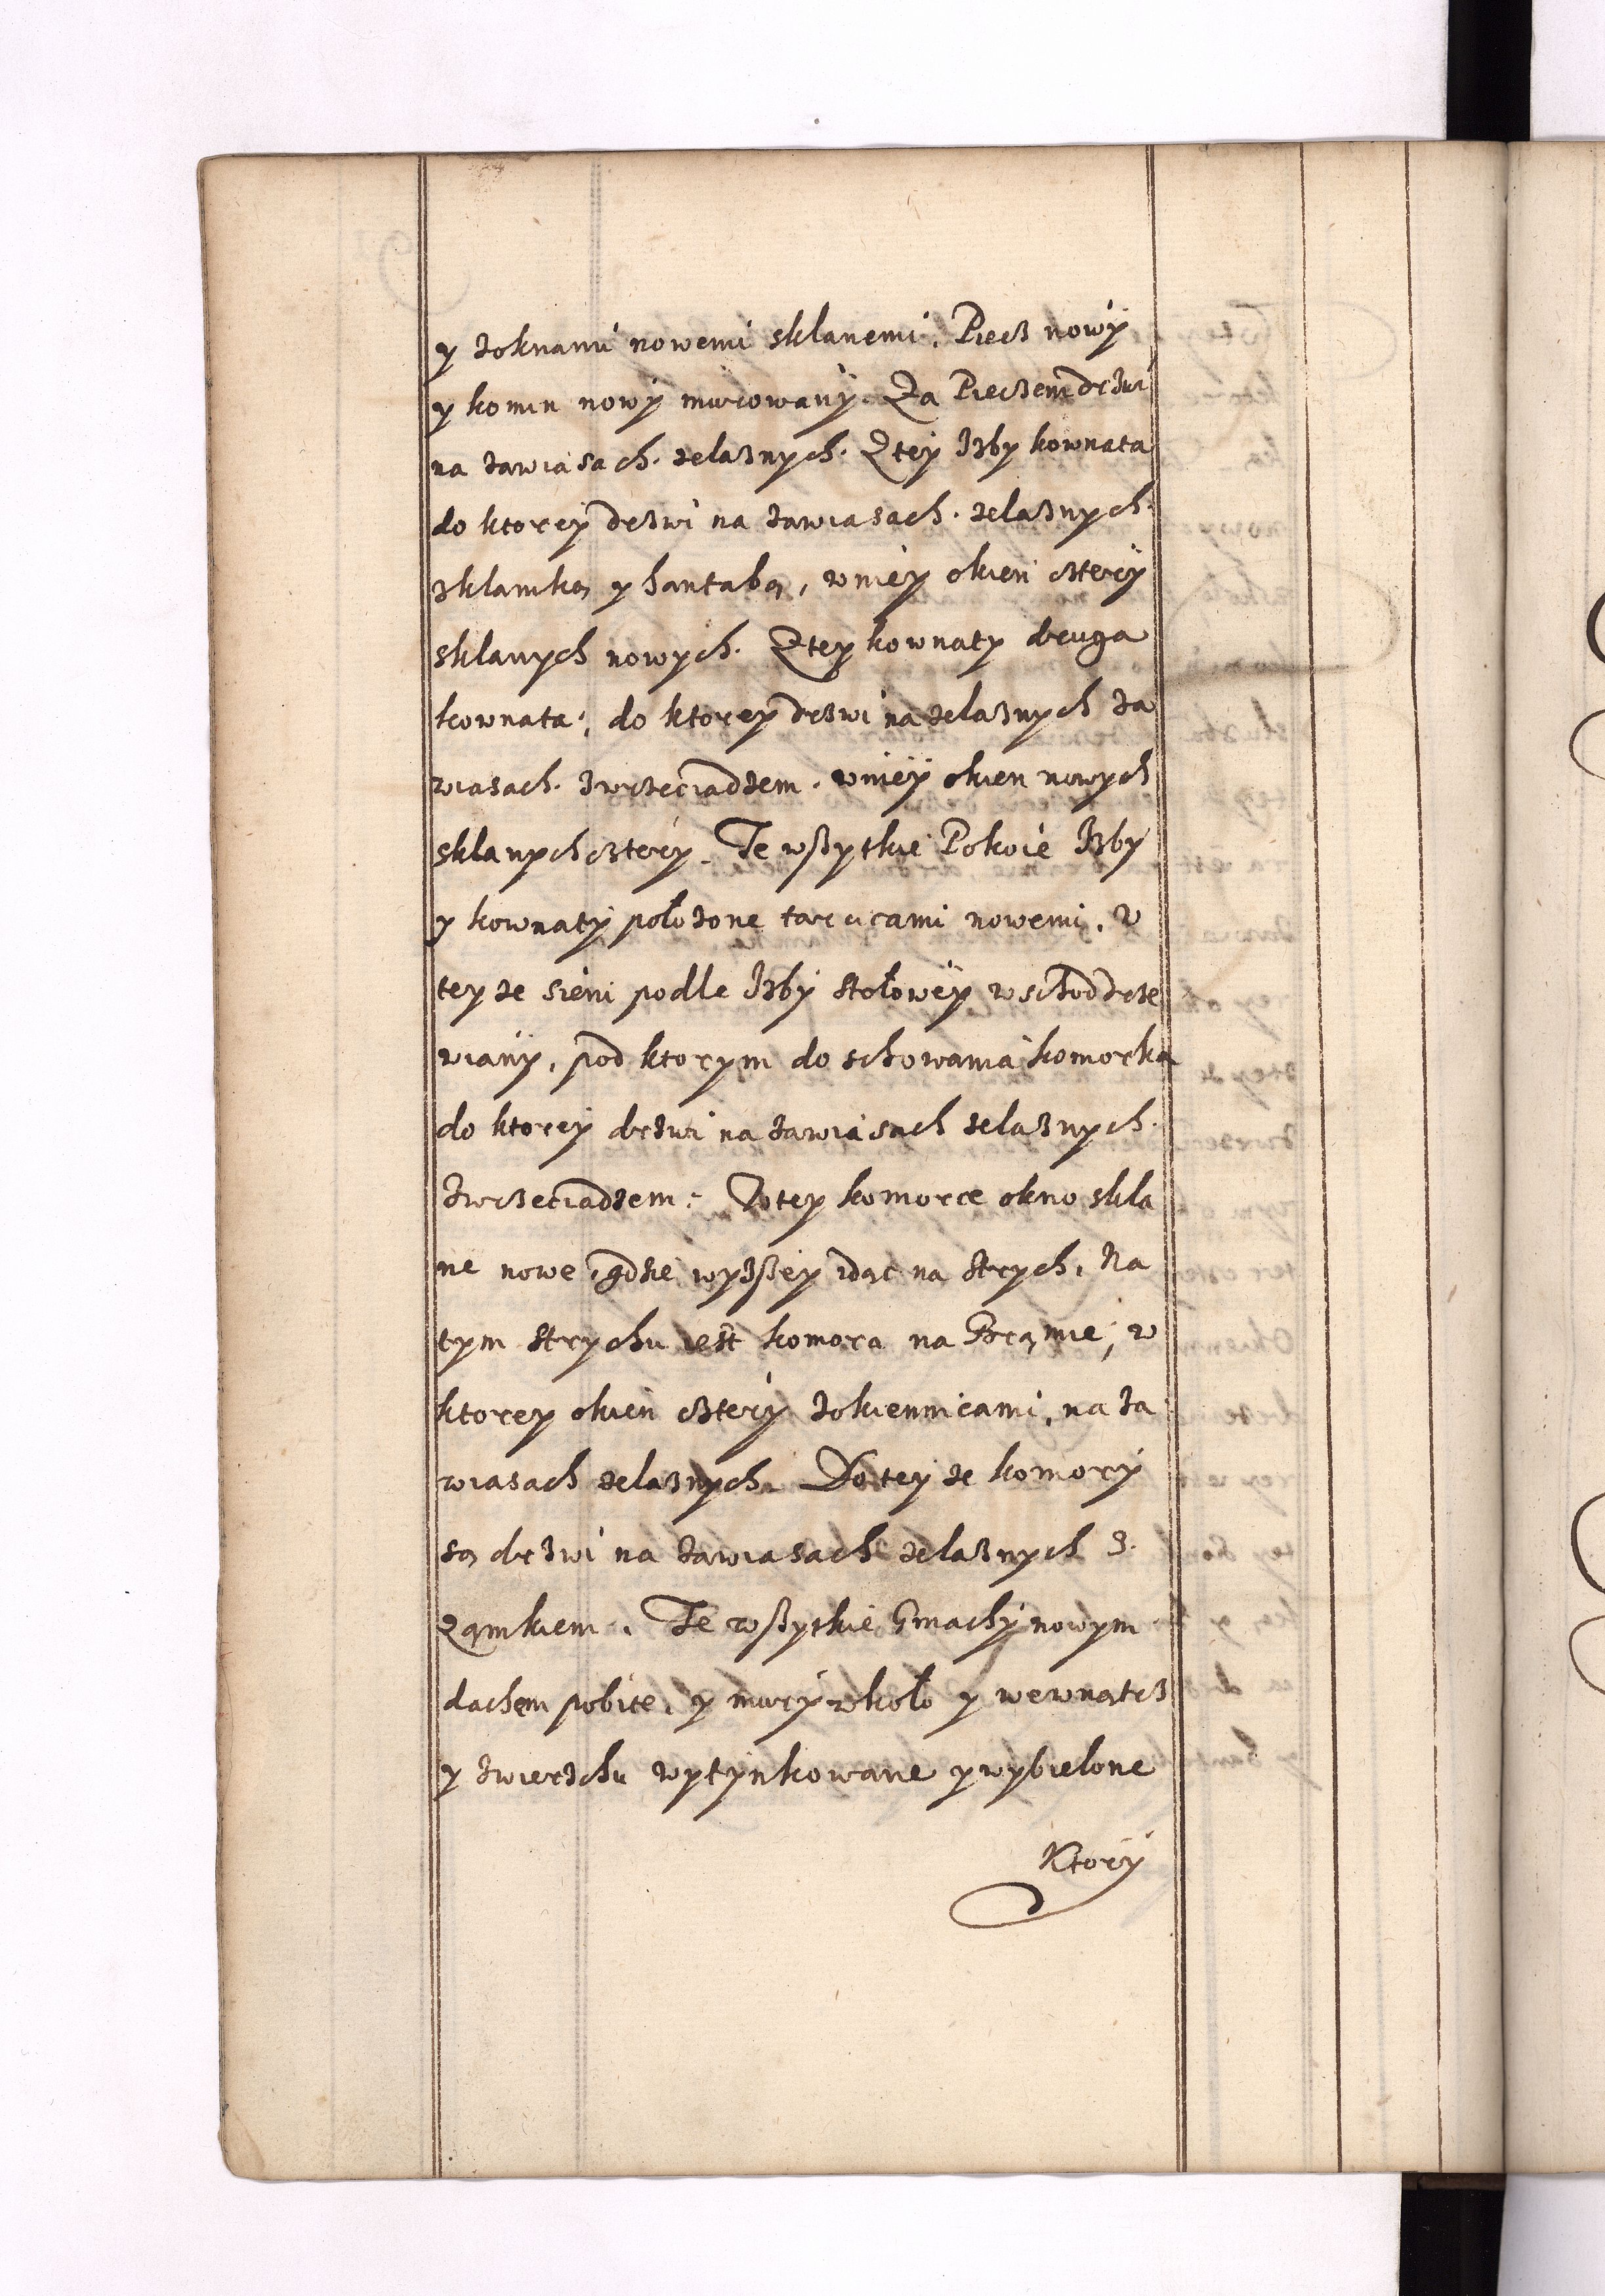 y zoknami nowemi sklanemi. Piecz nowy
y komin nowy murowany. Za Pieczem drzwi
na zawiasach. zelaznych. Ztey Izby kownata
do ktorey drzwi na zawiasach. zelaznych.
zklamką y hantabą, wniey okien cztery
sklanych nowych. Ztey kownaty druga
kownata, do ktorey drzwi na zelaznych za
wiasach. zwrzeciadzem. wniey okien nowych
sklanych cztery. Te wszytkie Pokoie Izby
y kownaty położone tarcicami nowemi. w
tey ze sieni podle Izby stołowey wschod drze
wiany, pod ktorym do schowania komorka
do ktorey drzwi na zawiasach zelaznych.
zwrzeciadzem. Wtey komorce okno skla
ne nowe, gdzie wyzszey idąc na strych. Na
tym strychu iest komora na Brąmie, w
ktorey okien cztery zokiennicami, na za
wiasach zelaznych. Do tey ze komory
są drzwi na zawiasach zelaznych z.
Ząmkiem. Te wszytkie Gmachy nowym
dachem pobite, y mury wkoło y wewnątrz
y zwierzchu wytynkowane y wybielone
Ktory